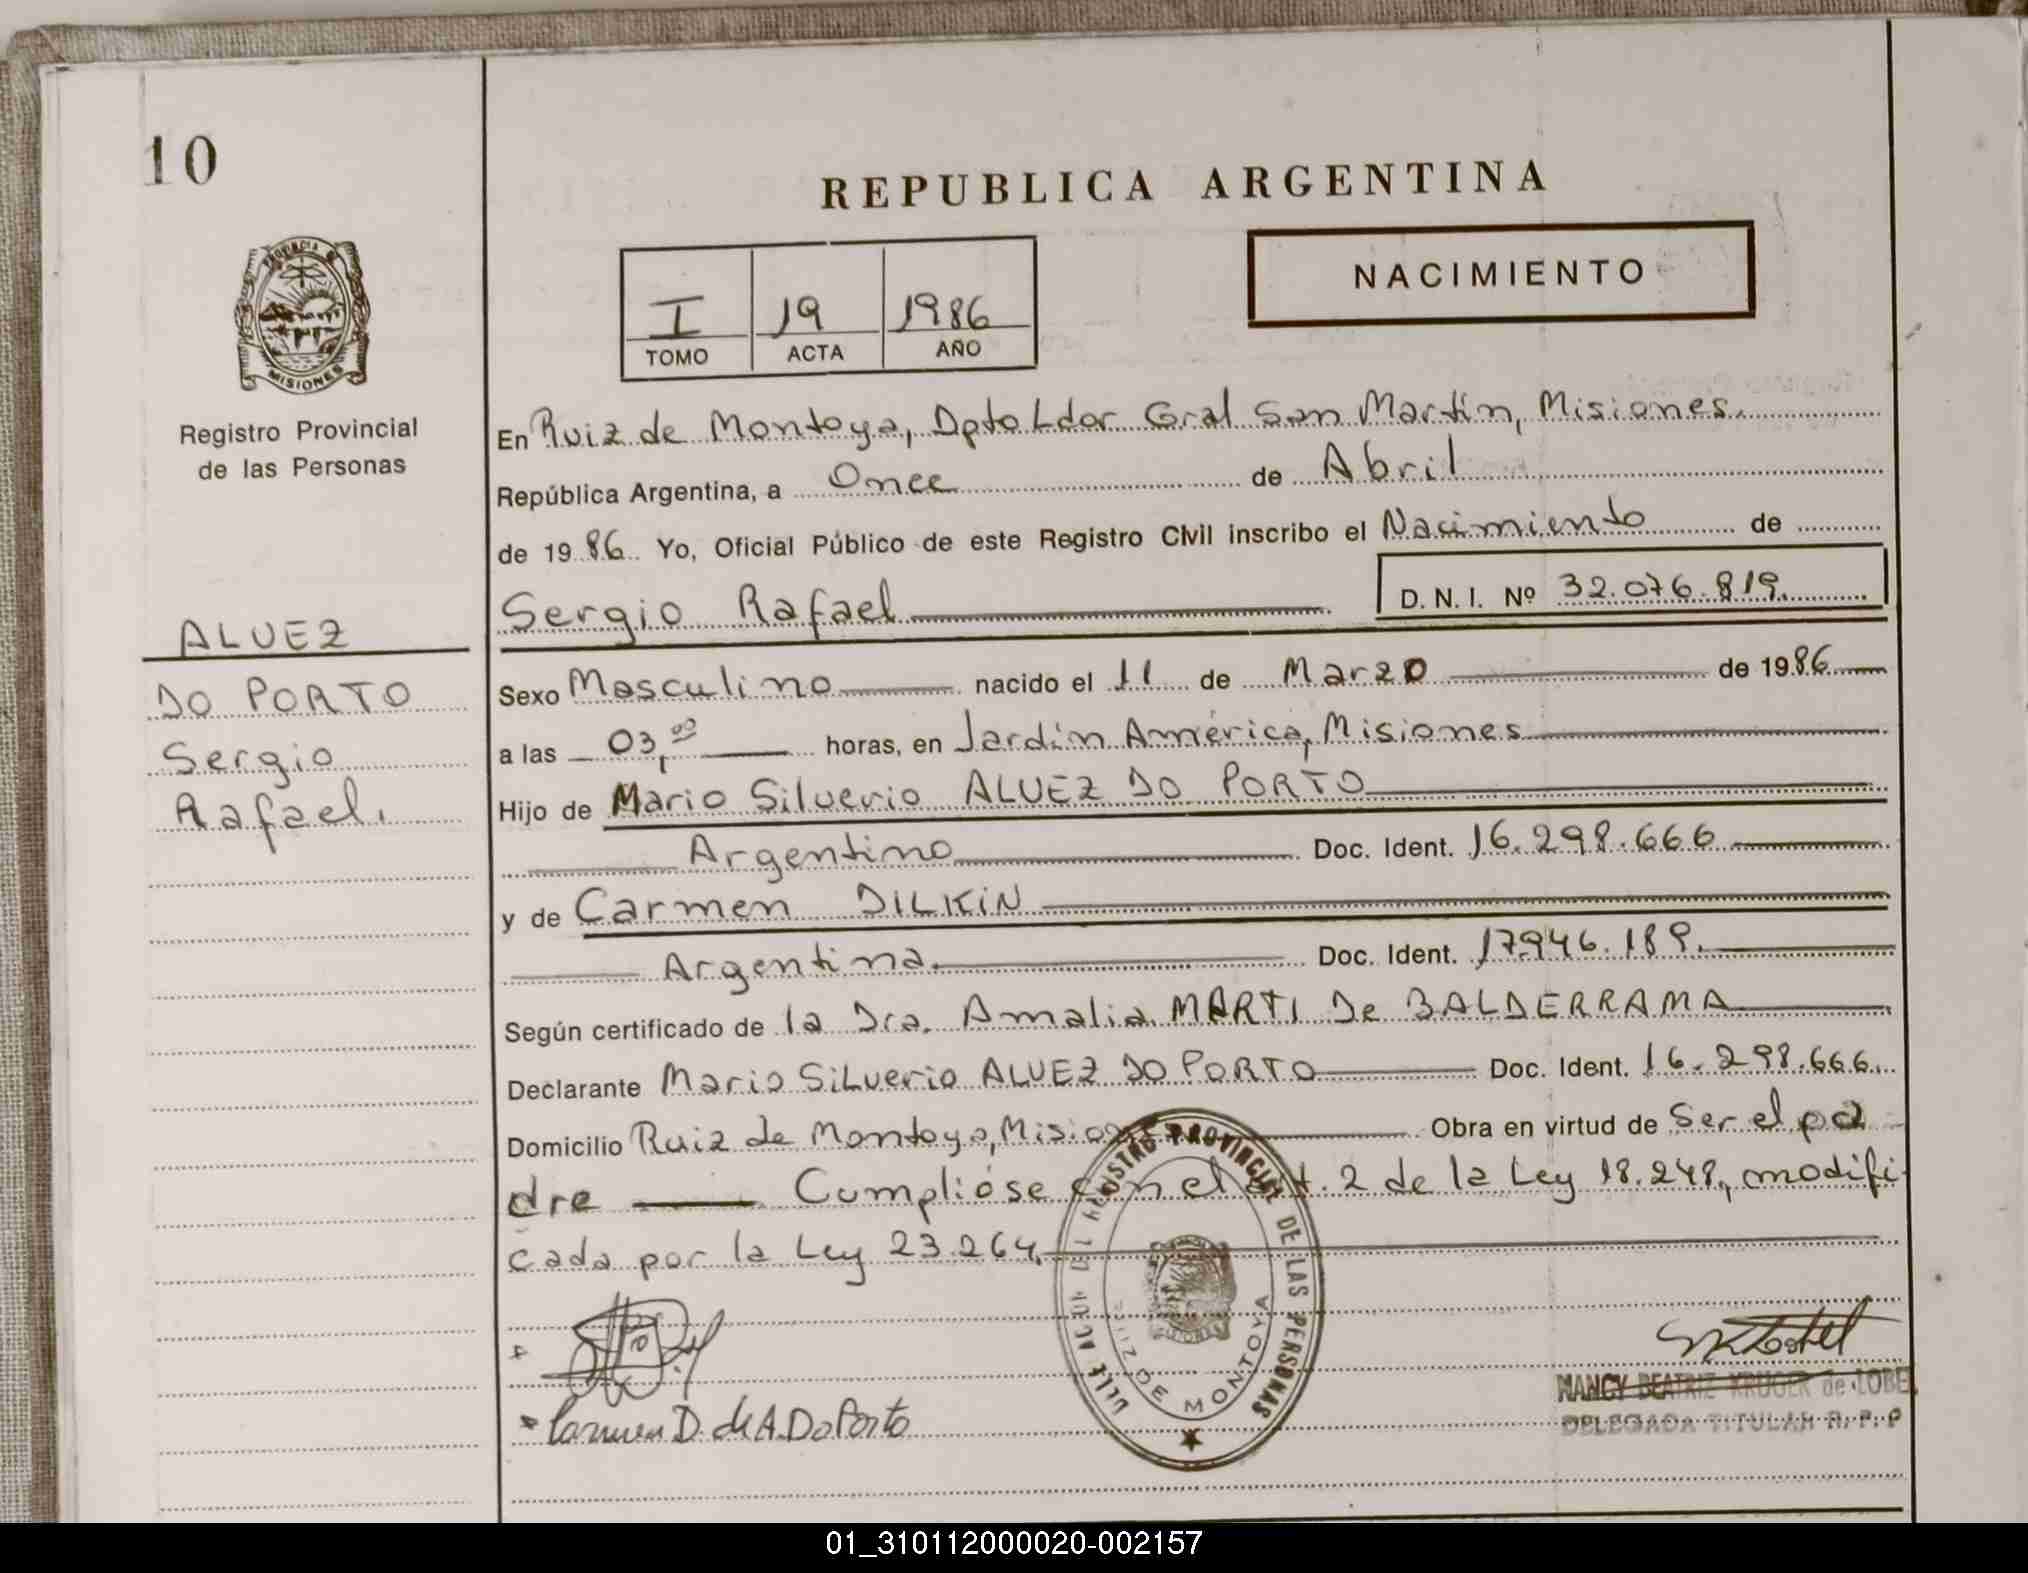 10
REPUBLICA ARGENTINA
NACIMIENTO
I 19 1986
TOMO ACTA AÑO
PROVINCIA DE
MISIONES
Registro Provincial
de las Personas
ALVEZ
DO PORTO
Sergio
Rafael.
En Ruiz de Montoya, Dpto Ldor Gral San Martín, Misiones.
República Argentina, a Once de Abril
de 1986. Yo, Oficial Público de este Registro Civil inscribo el Nacimiento de
Sergio Rafael D.N.I. Nº 32.076.819.
Sexo Masculino nacido el 11 de Marzo de 1986
a las 03,00 horas, en Jardín América, Misiones
Hijo de Mario Silverio ALVEZ DO PORTO
Argentino Doc. Ident. 16.298.666
y de Carmen DILKIN
Argentina. Doc. Ident. 17.946.189.
Según certificado de la Dra. Amalia MARTI De BALDERRAMA
Declarante Mario SiLverio ALVEZ DO PORTO Doc. Ident. 16.298.666.
Domicilio Ruiz de Montoya, Misiones Obra en virtud de Ser el pa
dre Cumplióse con el art. 2 de la Ley 18.248, modifi
cada por la Ley 23.264.
REGISTRO PROVINCIAL DE LAS PERSONAS
RUIZ DE MONTOYA
Carmen D. de A. Do Porto
NANCY BEATRIZ KRUGER de LOBE
DELEGADA TITULAR R.P.P
01_310112000020-002157